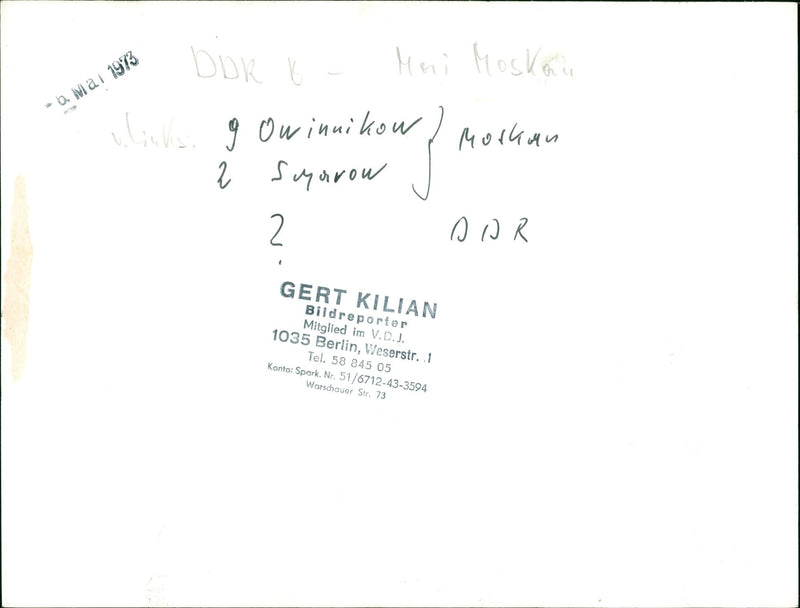 Mai 1973
DDR B - Mai Moskau
v. links: 9 Owinnikow } Moskau
2 Smarow
? DDR
GERT KILIAN
Bildreporter
Mitglied im V.D.J.
1035 Berlin, Weserstr. 1
Tel. 58 845 05
Konto: Spark. Nr. 51/6712-43-3594
Warschauer Str. 73